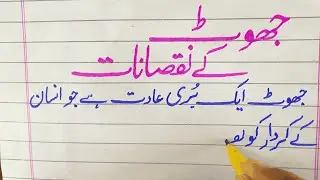 جھوٹ
کے نقصانات
جھوٹ ایک بُری عادت ہے جو انسان
کے کردار کو